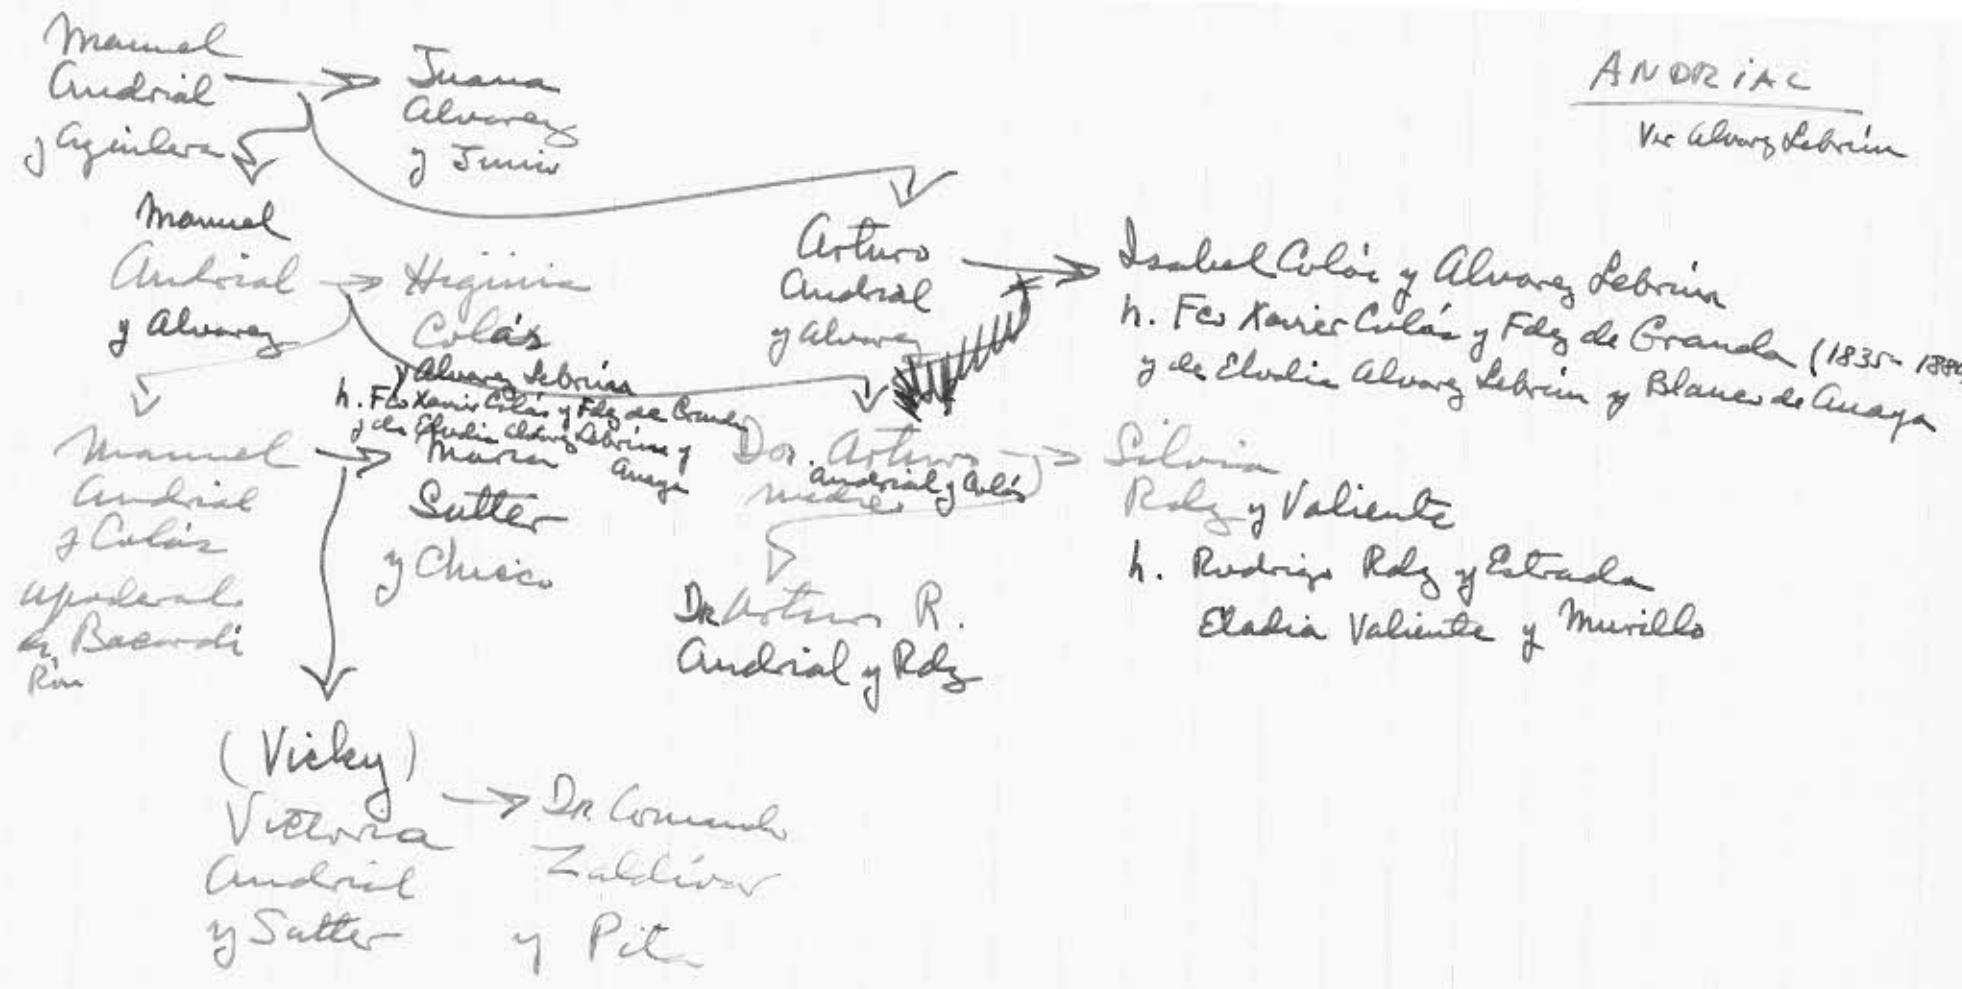 Manuel
Andrial
y Aguilera
Juana
Alvarez
y Junio
ANDRIAL
Ver Alvarez Lebrún
Manuel
Andrial
y Alvarez
Higinia
Colás
Alvarez Lebrún
h. Fco Xavier Colás y Fdez de Granda
y de Elodia Alvarez Lebrún y
Anaya
Arturo
Andrial
y Alvarez
Isabel Colás y Alvarez Lebrún
h. Fco Xavier Colás y Fdez de Granda (1835-
y de Elodia Alvarez Lebrún y Blanco de Anaya
Manuel
Andrial
y Colás
apoderado
de Bacardi
Ron
Maria
Sutter
y Chueco
Dr. Arturo
Andrial y Colás
Silvia
Rdz y Valiente
h. Rodrigo Rdz y Estrada
Eladia Valiente y Murillo
Dr Arturo R.
Andrial y Rdz
(Vicky)
Victoria
Andrial
y Sutter
Dr.
Zaldívar
y Pita